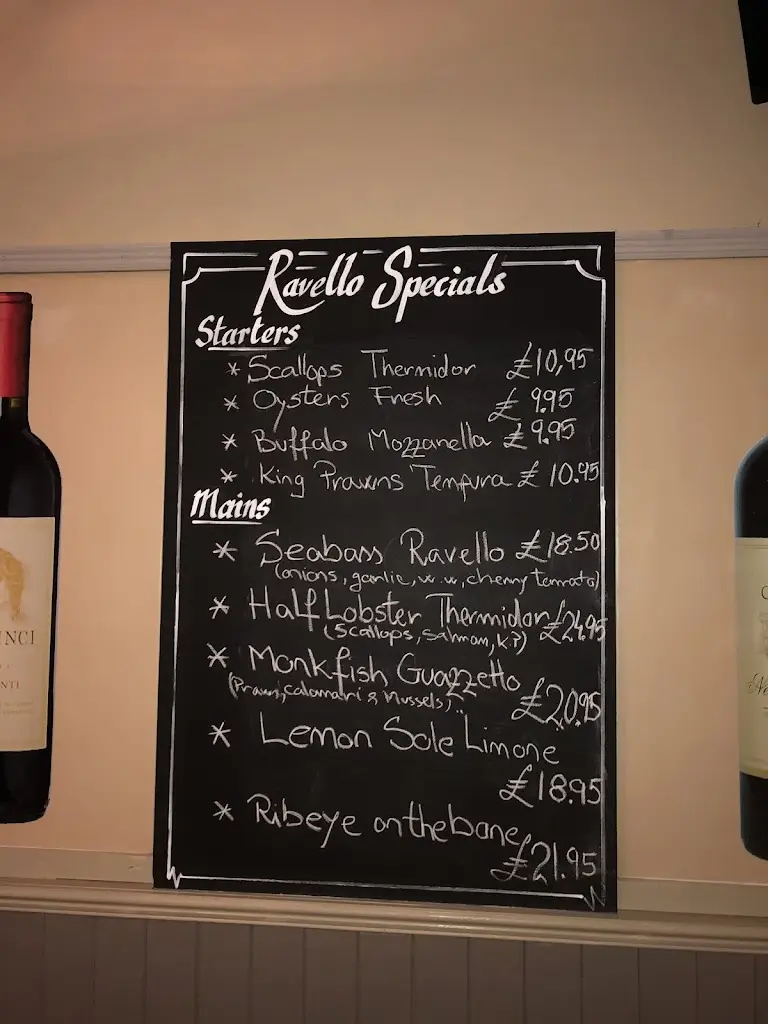 Ravello Specials
Starters
* Scallops Thermidor £10,95
* Oysters Fresh £ 9.95
* Buffalo Mozzarella £ 9.95
* King Prawns Tempura £ 10.95
Mains
* Seabass Ravello £18.50
(onions, garlic, w.w, cherry tomato)
* Half Lobster Thermidor £24.95
(Scallops, Salmon, K.P)
* Monkfish Guazzetto
(Prawn, calamari & Mussels)
£20.95
* Lemon Sole Limone
£18.95
* Ribeye on the bone
£21.95
INCI
NTI